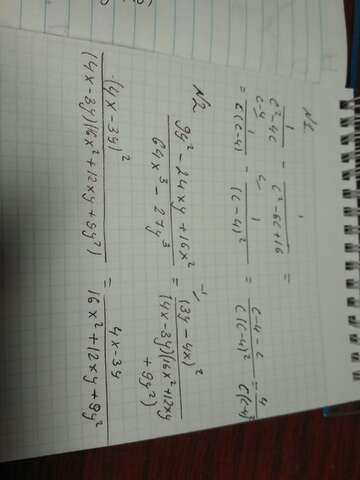 N1.
\frac{1}{c^2-4c} - \frac{1}{c^2-6c+16} =
= \frac{1}{c(c-4)} - \frac{1}{(c-4)^2} = \frac{c-4-c}{c(c-4)^2} = \frac{4}{c(c-4)^2}
N2.
\frac{9y^2-24xy+16x^2}{64x^3-27y^3} = \frac{(3y-4x)^2}{(4x-3y)(16x^2+12xy+9y^2)}
\frac{(4x-3y)^2}{(4x-3y)(16x^2+12xy+9y^2)} = \frac{4x-3y}{16x^2+12xy+9y^2}